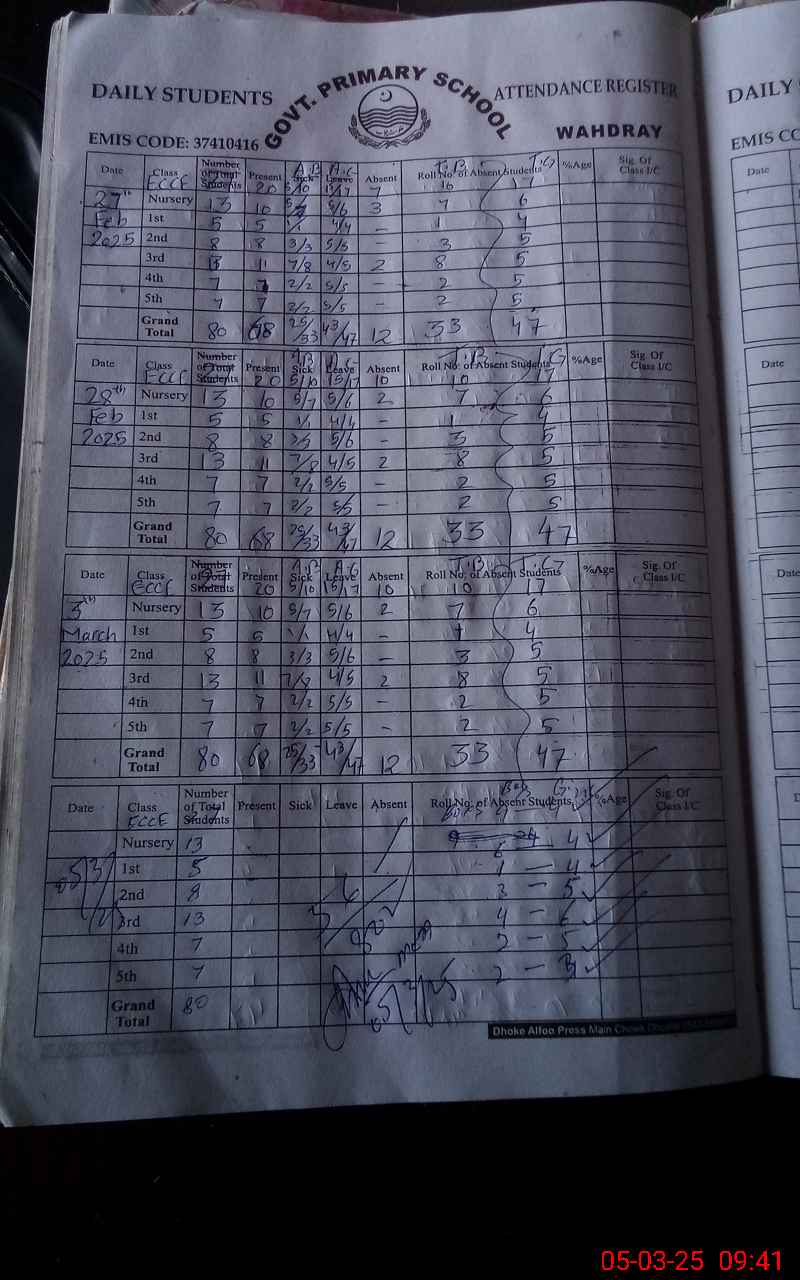 DAILY STUDENTS GOVT. PRIMARY SCHOOL ATTENDANCE REGISTER
EMIS CODE: 37410416 WAHDRAY
Date Class Number of Total Students Present Sick Leave Absent Roll No: of Absent Students %Age Sig. Of Class I/C
ECCE 20 5/10 15/17 7 10 17
27th Nursery 13 10 5/7 5/6 3 7 6
Feb 1st 5 5 1/1 4/4 - 1 4
2025 2nd 8 8 3/3 5/5 - 3 5
3rd 13 11 7/8 4/5 2 8 5
4th 7 7 2/2 5/5 - 2 5
5th 7 7 2/2 5/5 - 2 5
Grand Total 80 68 25/33 43/47 12 33 47
Date Class Number of Total Students Present Sick Leave Absent Roll No: of Absent Students %Age Sig. Of Class I/C
ECCE 20 5/10 15/17 10 10 17
28th Nursery 13 10 5/7 5/6 2 7 6
Feb 1st 5 5 1/1 4/4 - 1 4
2025 2nd 8 8 5/6 - 3 5
3rd 13 11 7/8 4/5 2 8 5
4th 7 7 2/2 5/5 - 2 5
5th 7 7 2/2 5/5 - 2 5
Grand Total 80 68 25/33 43/47 12 33 47
Date Class Number of Total Students Present Sick Leave Absent Roll No: of Absent Students %Age Sig. Of Class I/C
ECCE 20 5/10 15/17 10 10 17
3th Nursery 13 10 5/7 5/6 2 7 6
March 1st 5 5 1/1 4/4 - 4
2025 2nd 8 8 3/3 5/6 - 3 5
3rd 13 11 7/8 4/5 2 8 5
4th 7 7 2/2 5/5 - 2 5
5th 7 7 2/2 5/5 - 2 5
Grand Total 80 68 25/33 43/47 12 33 47
Date Class Number of Total Students Present Sick Leave Absent Roll No: of Absent Students %Age Sig. Of Class I/C
ECCE
Nursery 13 6 4
1st 5 1 - 4
2nd 8 3 - 5
3rd 13 4 - 6
4th 7 2 - 5
5th 7 2 - 3
Grand Total 80
Dhoke Alfoo Press Main Chowk
DAILY
EMIS CO
Date
Date
Date
Date
05-03-25 09:41